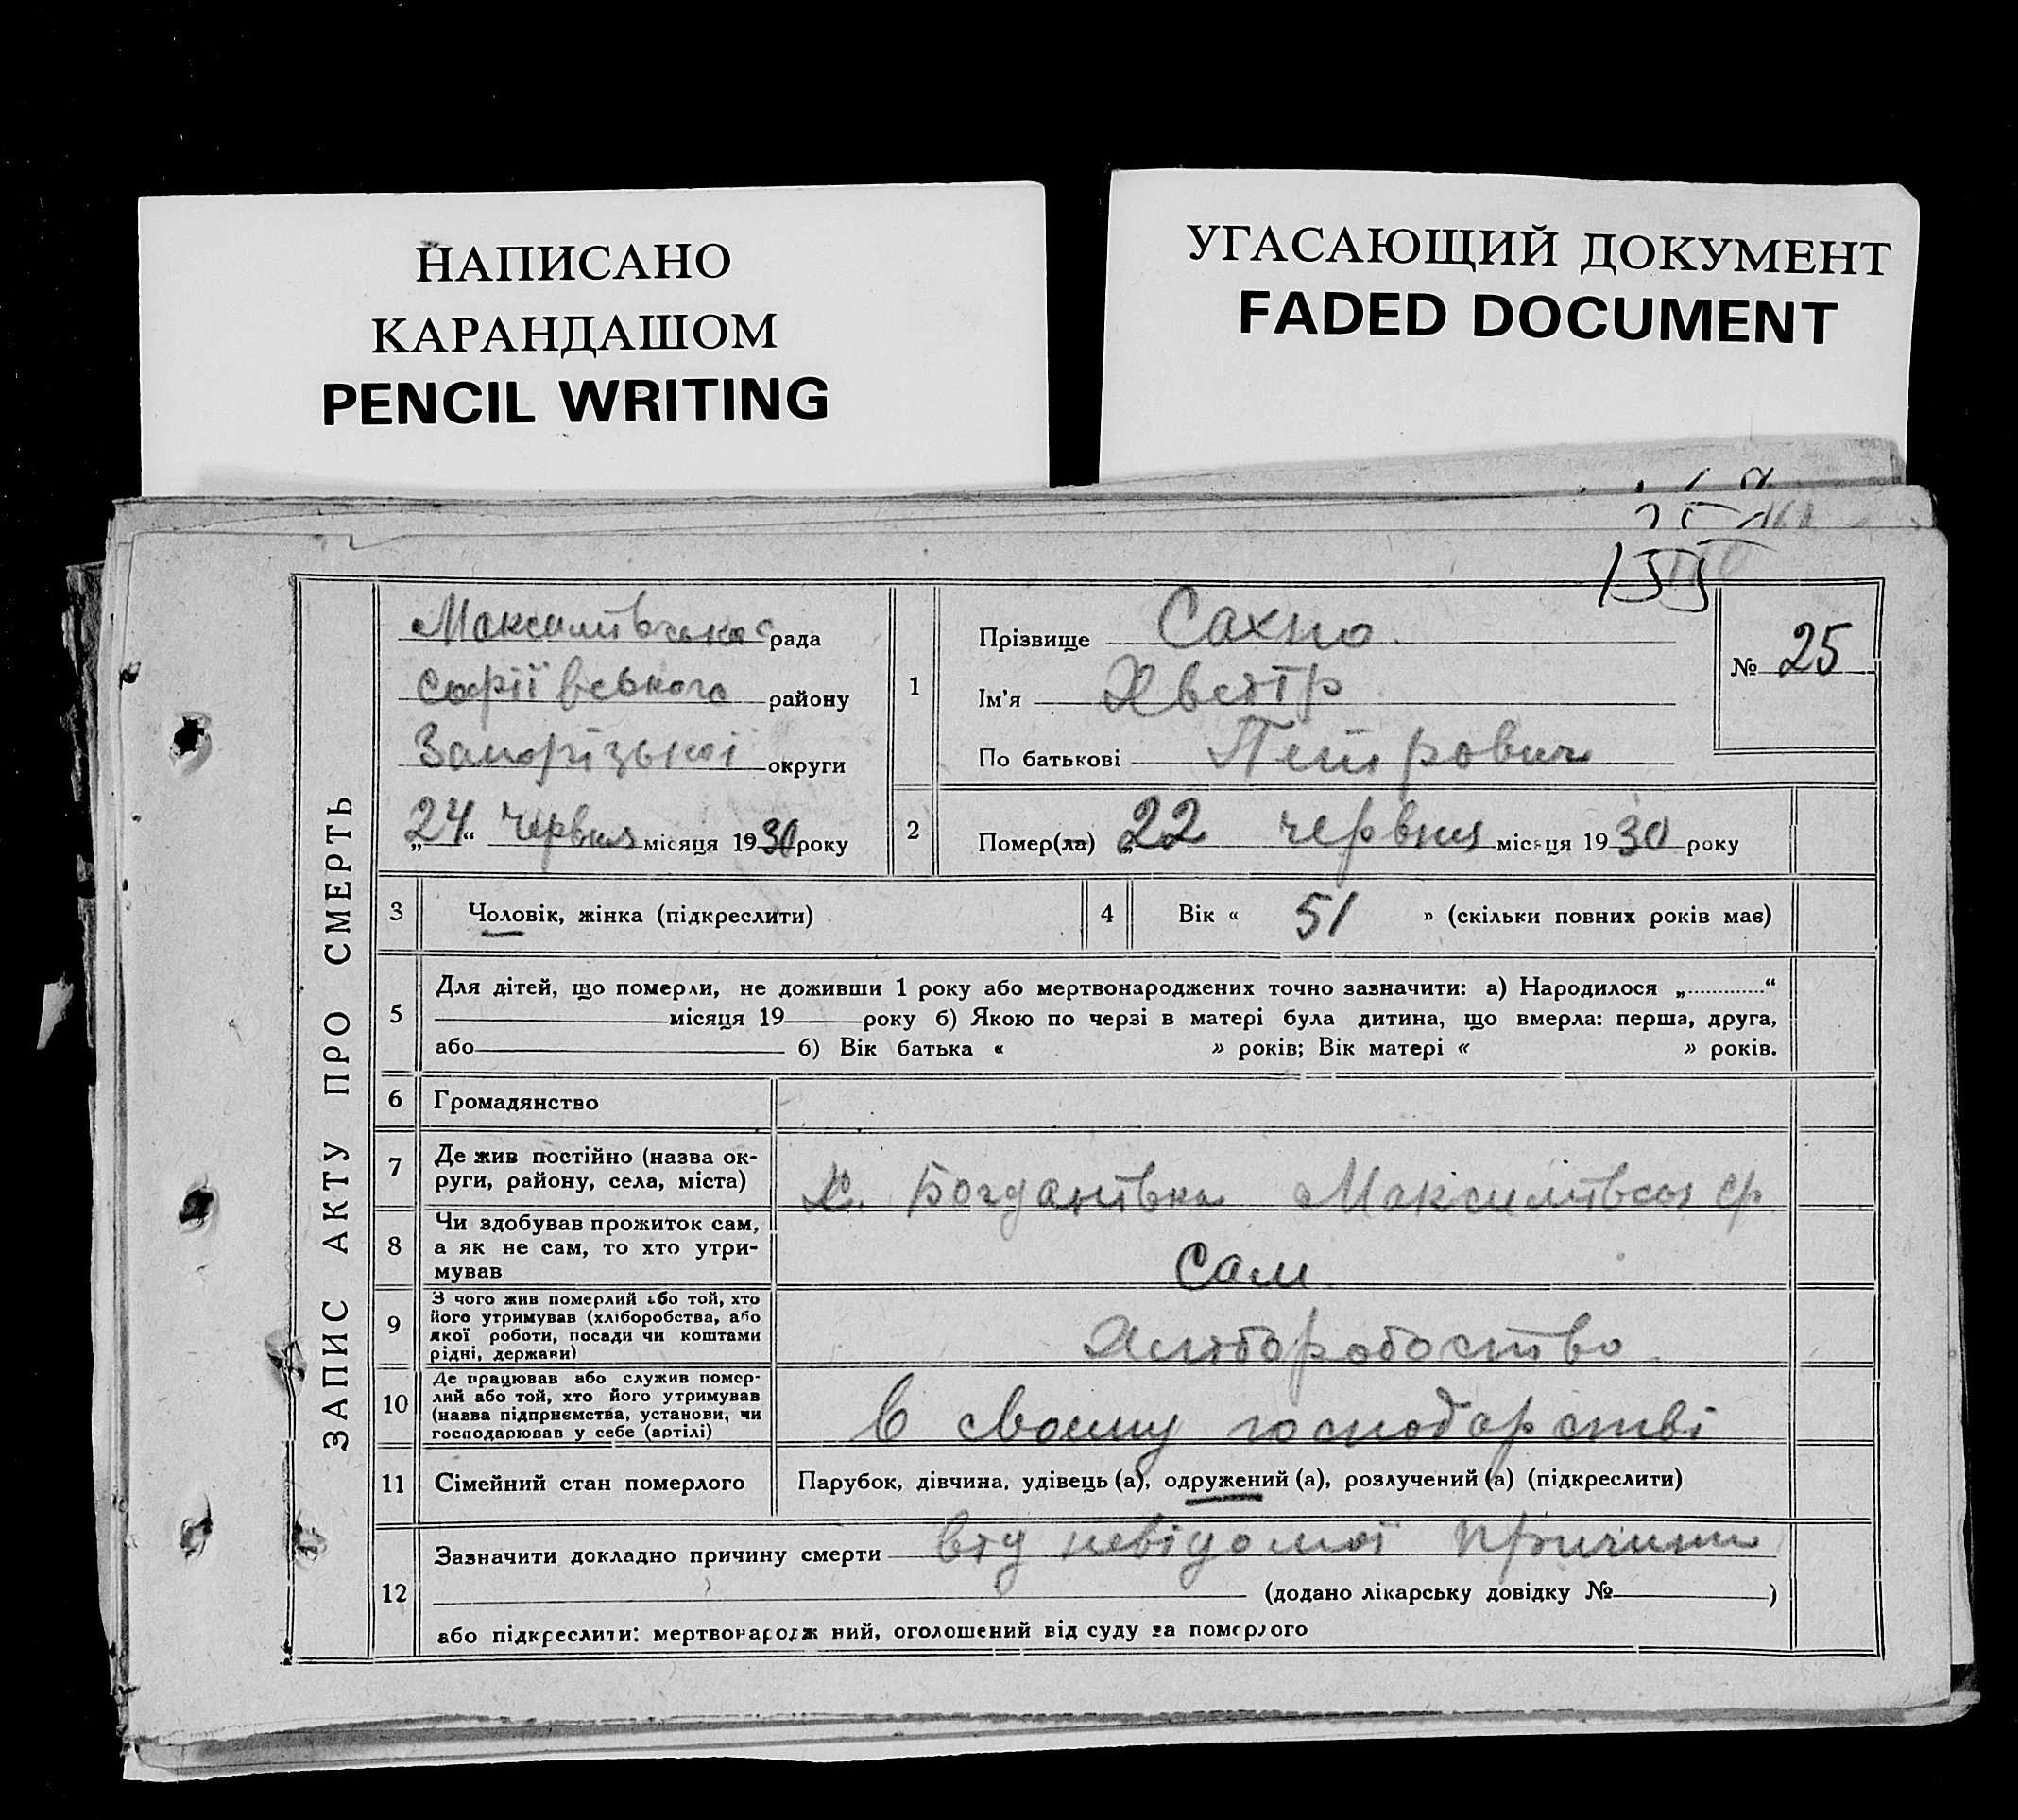 НАПИСАНО
КАРАНДАШОМ
PENCIL WRITING
УГАСАЮЩИЙ ДОКУМЕНТ
FADED DOCUMENT
155
ЗАПИС АКТУ ПРО СМЕРТЬ
рада
Софіївського району
Запорізької округи
„24“ червня місяця 1930 року
1
Прізвище Сахно
Ім'я
По батькові Петрович
№ 25
2
Помер(ла) „22 червня місяця 1930 року
3
Чоловік, жінка (підкреслити)
4
Вік « 51 » (скільки повних років має)
5
Для дітей, що померли, не доживши 1 року або мертвонароджених точно зазначити: а) Народилося „............“
місяця 19 року б) Якою по черзі в матері була дитина, що вмерла: перша, друга,
або б) Вік батька « » років; Вік матері « » років.
6
Громадянство
7
Де жив постійно (назва ок-
руги, району, села, міста)
х. Богданівка
8
Чи здобував прожиток сам,
а як не сам, то хто утри-
мував
Сам
9
З чого жив померлий або той, хто
його утримував (хліборобства, або
якої роботи, посади чи коштами
рідні, держави)
Хліборобство
10
Де працював або служив помер-
лий або той, хто його утримував
(назва підприємства, установи, чи
господарював у себе (артілі)
В своєму господарстві
11
Сімейний стан померлого
Парубок, дівчина, удівець (а), одружений (а), розлучений (а) (підкреслити)
12
Зазначити докладно причину смерти від невідомої причини
(додано лікарську довідку № )
або підкреслити: мертвонародж ний, оголошений від суду за померлого